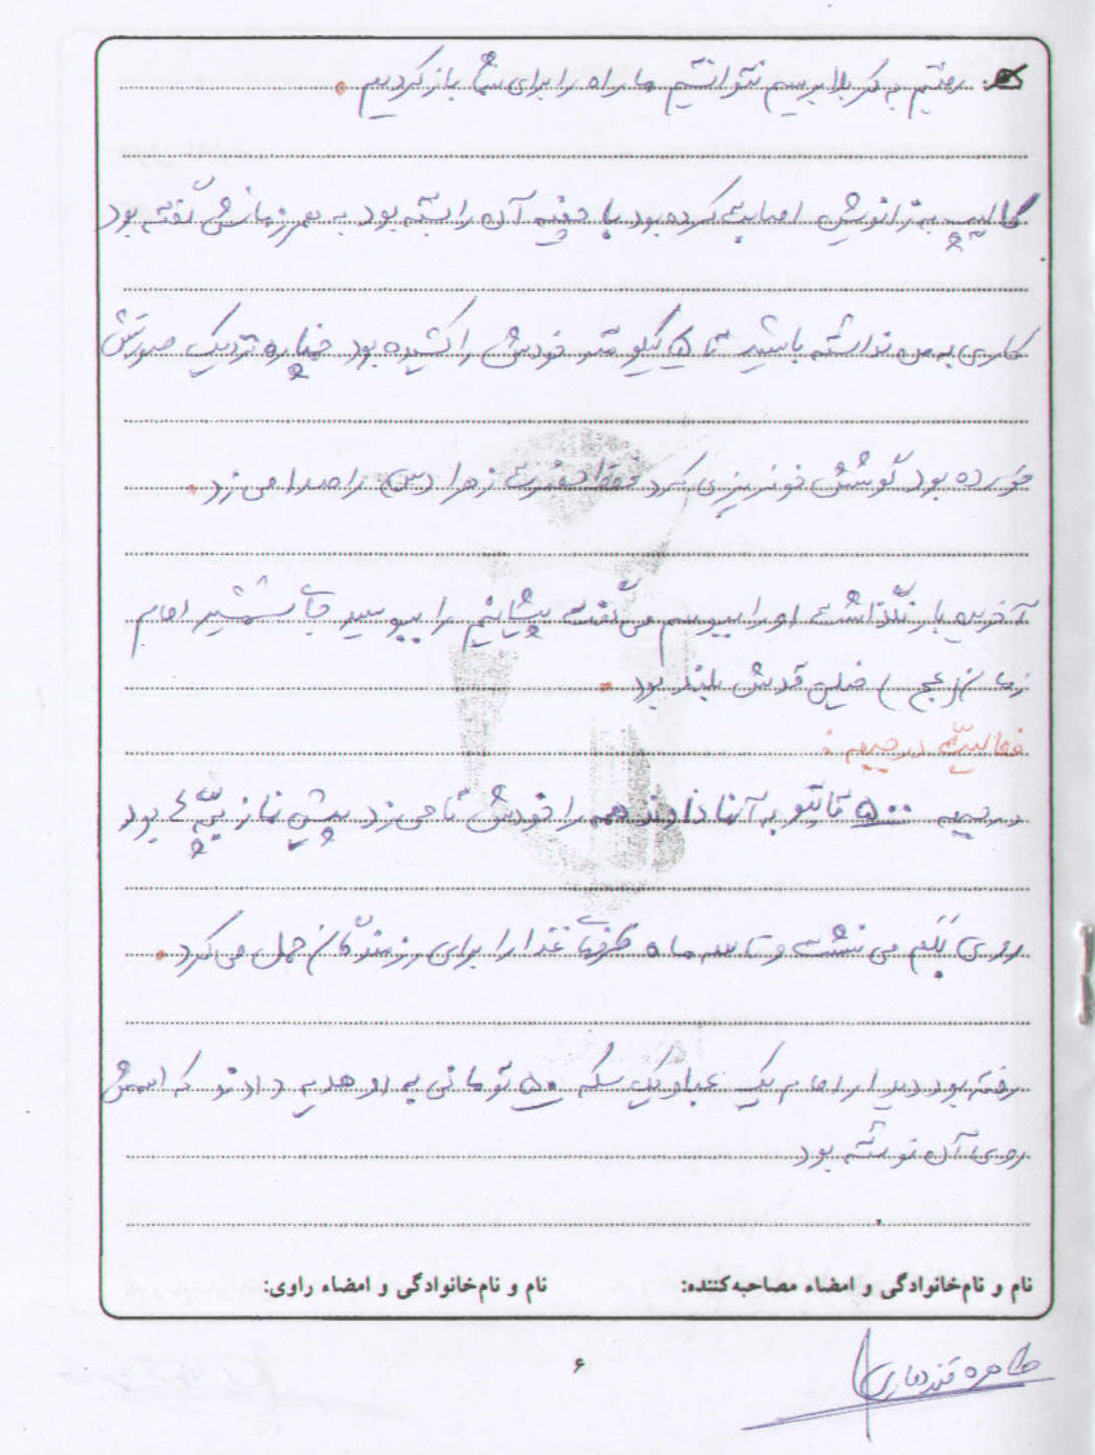 رفتیم به کربلا برسیم نتوانستیم ما راه را برای شما باز کردیم.
کالیبر به زانویش اصابت کرده بود با چفیه آن را بسته بود به همرزمانش گفته بود
کاری به من نداشته باشید تا ۵ کیلو متر خودش را کشیده بود خمپاره نزدیک صورتش
خورده بود گوشش خونریزی کرد فقط حضرت زهرا (س) را صدا می زد.
آخرین بار نگذاشت او را ببوسم می گفت پیشانیم را ببوسید جای شمشیر امام
زمان (عج) خیلی قدش بلند بود.
فعالیت در جبهه :
در جبهه ۵۰۰ تا پتو به آنها دادند همه را خودش تا می زد پیش نماز بود
روی بلم می نشست و تا سه ماه ظرفهای غذا را برای رزمندگان حمل می کرد.
رفته بود دیدار امام یک عبا و یک سکه ۵۰ تومانی به او هدیه دادند که اسمش
روی آن نوشته بود
نام و نام‌خانوادگی و امضاء مصاحبه‌کننده: نام و نام‌خانوادگی و امضاء راوی:
طاهره قندهاری
۶